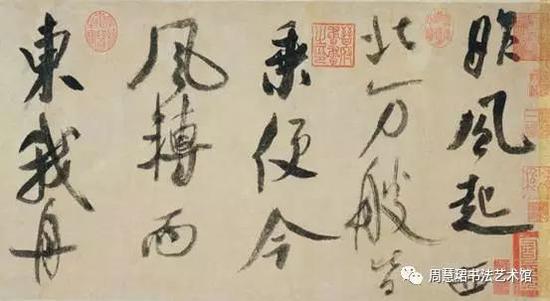 昨風起西
北万艘皆
乘便今
風轉而
東我舟
周慧珺书法艺术馆